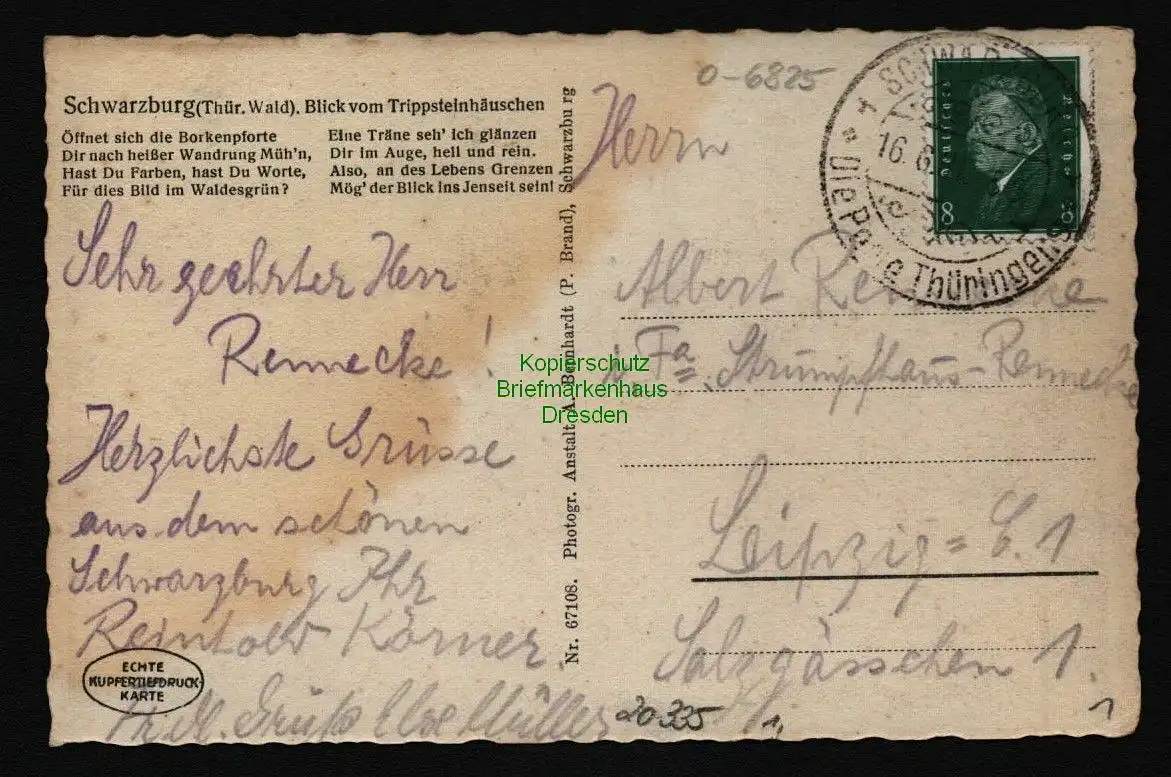 Schwarzburg (Thür. Wald). Blick vom Trippsteinhäuschen
Öffnet sich die Borkenpforte
Dir nach heißer Wandrung Müh'n,
Hast Du Farben, hast Du Worte,
Für dies Bild im Waldesgrün?
Eine Träne seh' ich glänzen
Dir im Auge, hell und rein.
Also, an des Lebens Grenzen
Mög' der Blick ins Jenseit sein!
Sehr geehrter Herr
Rennecke!
Herzlichste Grüsse
aus dem schönen
Schwarzburg Ihr
Reinhold Körner
Gruß Else Müller
ECHTE
KUPFERTIEFDRUCK-
KARTE
Nr. 67108. Photogr. Anstalt A. Bernhardt (P. Brand), Schwarzburg
Kopierschutz
Briefmarkenhaus
Dresden
0-6825
SCHWARZBURG
16.6.
Die Perle Thüringens
Deutsches Reich
8
8
Herrn
Albert Rennecke
Fa. Strumpfhaus-Rennecke
Leipzig = C.1
Salzgässchen 1.
20335
1,
1